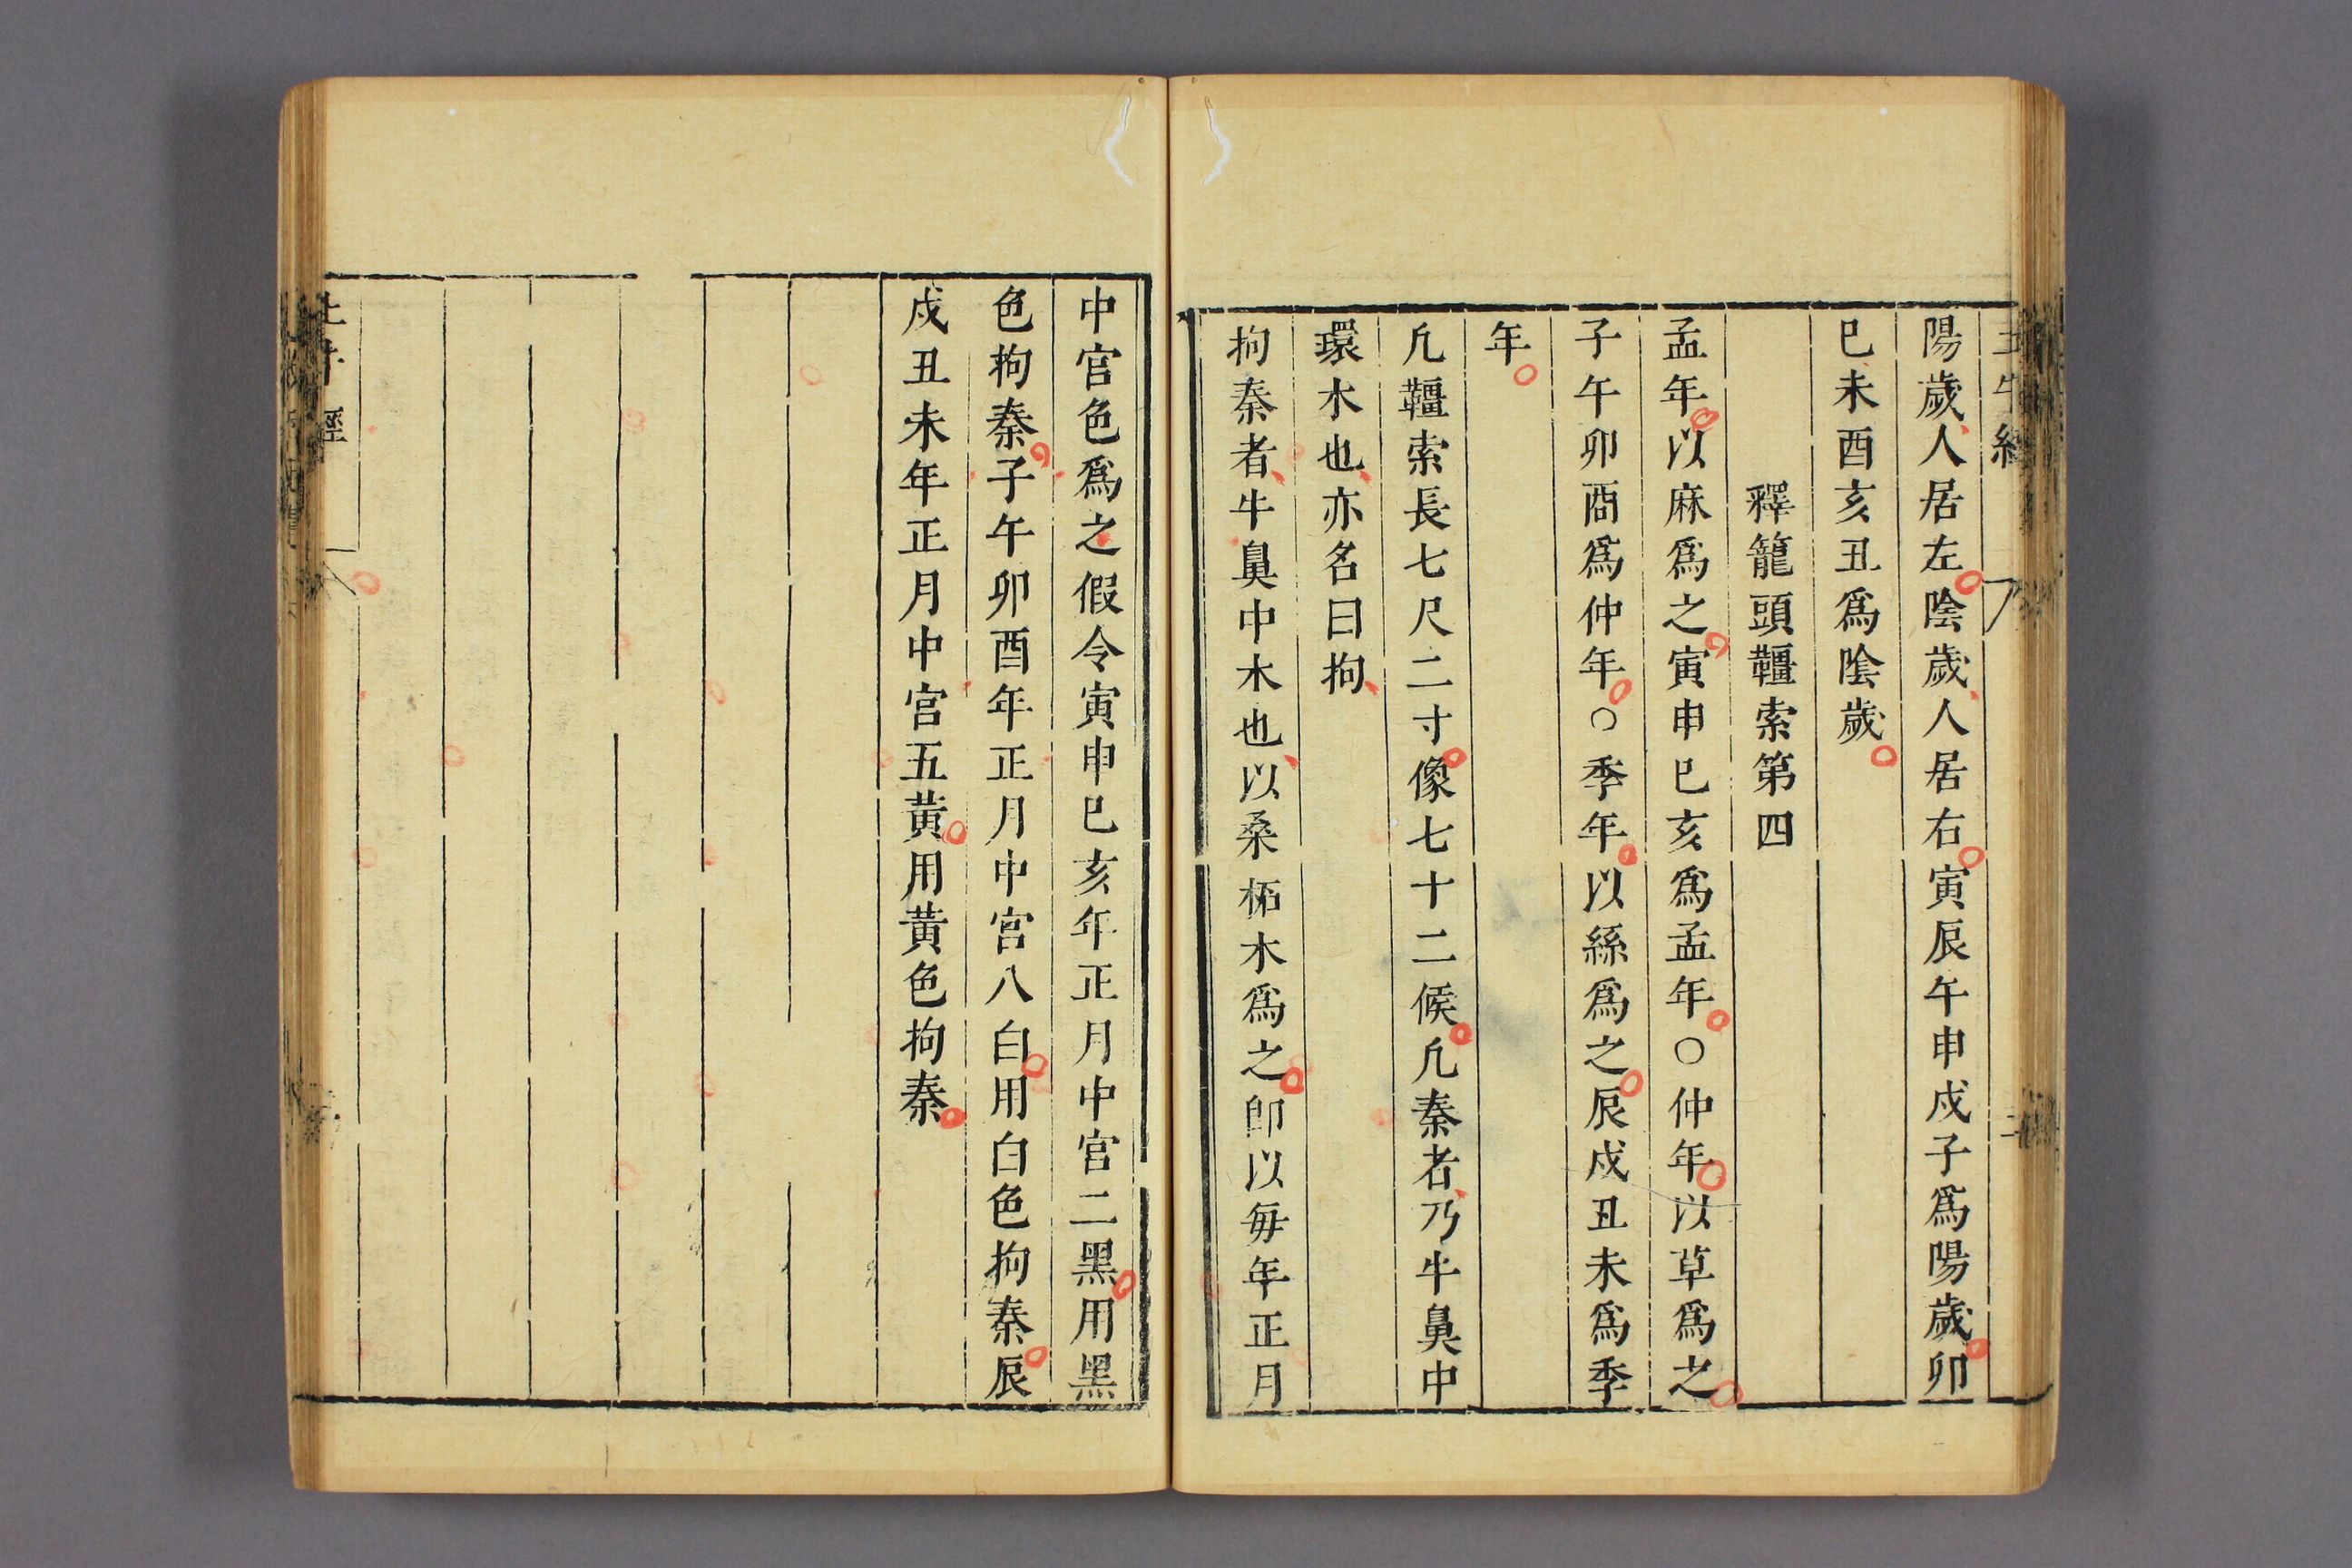 陽歲人居左陰歲人居右寅辰午申戍子爲陽歲卯
巳未酉亥丑爲陰歲
釋籠頭韁索第四
孟年以麻爲之寅申巳亥爲孟年○仲年以草爲之
子午卯酉爲仲年○季年以絲爲之辰戍丑未爲季
年
凡韁索長七尺二寸像七十二候凡桊者乃牛鼻中
環木也亦名曰拘
拘桊者牛鼻中木也以桑柘木爲之卽以每年正月
中宮色爲之假令寅申巳亥年正月中宮二黑用黑
色拘桊子午卯酉年正月中宮八白用白色拘桊辰
戍丑未年正月中宮五黄用黄色拘桊
土牛經